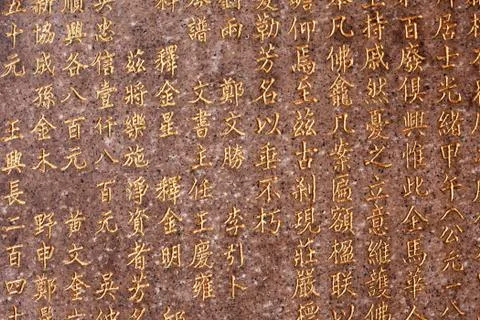 居士光緒甲午八公元一八
百廢俱興惟此金馬華
持戚然憂之立意維護佛
本凡佛龕几案匾額楹聯以
瞻仰焉至茲古剎現莊嚴
勒芳名以垂不朽
雨 鄭文勝 李引卜
譜 文書主任王慶雍
釋金星 釋金明 邱
茲將樂施淨資者芳名
忠信壹仟八百元 吳
順興各八百元 黃文奎
新協成孫金木 野申鄭是
五十元 王興長二百四十